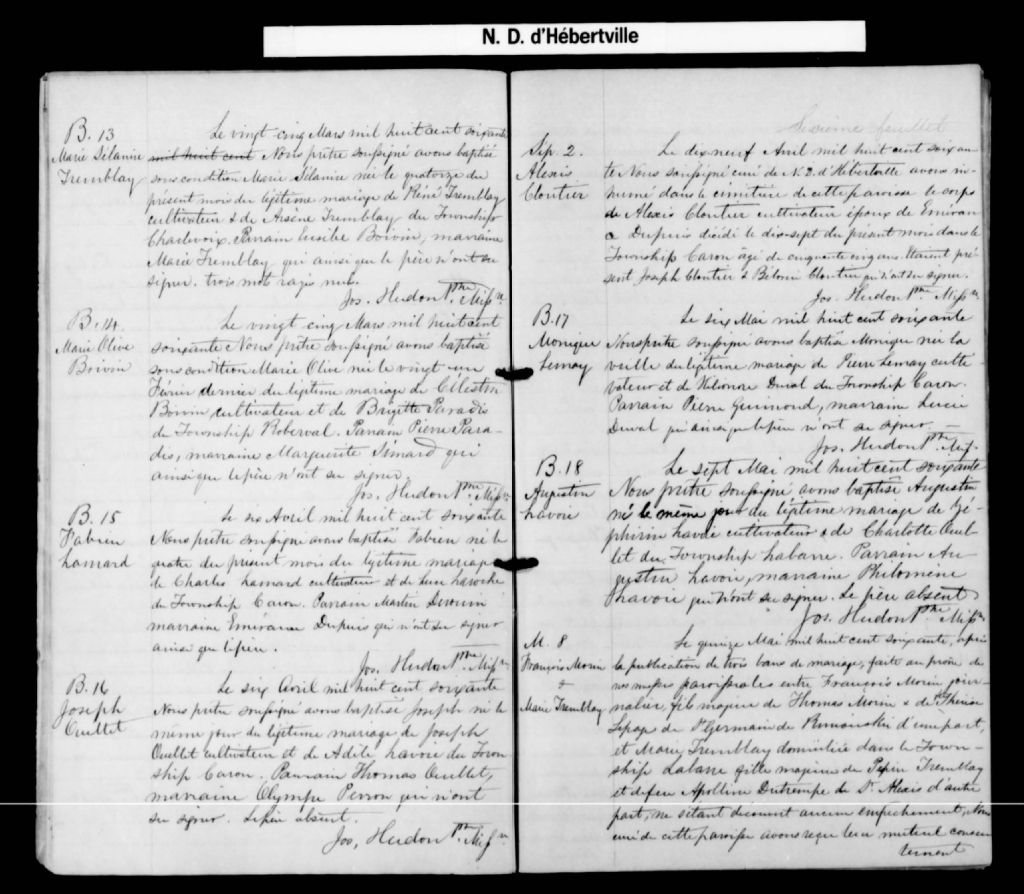 N. D. d'Hébertville
B. 13
Marie Délanise
Tremblay
Le vingt cinq Mars mil huit cent soixante
mil huit cent Nous prêtre soussigné avons baptisé
sous condition Marie Délanise née le quatorze du
présent mois du légitime mariage de Tremblay
cultivateur & de Arsène Tremblay du Township
Charlevoix. Parrain Eusèbe Boivin, marraine
Marie Tremblay qui ainsi que le père n'ont su
signer. trois mot rayés nuls.
Jos. Hudon Ptre Miss re
B. 14.
Marie Olive
Boivin
Le vingt cinq Mars mil huit cent
soixante Nous prêtre soussigné avons baptisé
sous condition Marie Olive née le vingt un
Février dernier du légitime mariage de Célestin
Boivin cultivateur et de Brigitte Paradis
du Township Roberval. Parrain Pierre Para-
dis, marraine Marguerite Simard qui
ainsi que le père n'ont su signer.
Jos. Hudon Ptre Miss re
B. 15
Fabien
Lamard
Le six Avril mil huit cent soixante
Nous prêtre soussigné avons baptisé Fabien né le
quatre du présent mois du légitime mariage
de Charles Lamard cultivateur et de Laroche
du Township Caron. Parrain Martin
marraine Emérence Dupuis qui n'ont su signer
ainsi que le père.
Jos. Hudon Ptre Miss re
B. 16
Joseph
Ouellet
Le six Avril mil huit cent soixante
Nous prêtre soussigné avons baptisé Joseph né le
même jour du légitime mariage de Joseph
Ouellet cultivateur et de Adèle Lavoie du Town
ship Caron. Parrain Thomas Ouellet,
marraine Olympe Perron qui n'ont
su signer. Le père absent.
Jos. Hudon Ptre Miss re
Sixième feuillet
Sép. 2.
Alexis
Cloutier
Le dix neuf Avril mil huit cent soixan
te Nous soussigné curé de N. D. d'Hébertville avons in
humé dans le cimetière de cette paroisse le corps
de Alexis Cloutier cultivateur époux de Eméran
ce Dupuis décédé le dix-sept du présent mois dans le
Township Caron âgé de cinquante cinq ans. Etaient pré
sent Joseph Cloutier & Cloutier qui n'ont su signer.
Jos. Hudon Ptre Miss re
B. 17
Monique
Lemay
Le six Mai mil huit cent soixante
Nous prêtre soussigné avons baptisé Monique née la
veille du légitime mariage de Pierre Lemay culti
vateur et de Duval du Township Caron.
Parrain Pierre Guimond, marraine Lucie
Duval qui ainsi que le père n'ont su signer. —
Jos. Hudon Ptre Miss.
B. 18
Augustin
Lavoie
Le sept Mai mil huit cent soixante
Nous prêtre soussigné avons baptisé Augustin
né le même jour du légitime mariage de Zé-
phirin Lavoie cultivateur & de Charlotte Ouel
let du Township Labarre. Parrain Au
gustin Lavoie, marraine Philomène
Lavoie qui n'ont su signer. Le père absent
Jos. Hudon Ptre Miss re
M. 8
François Morin
&
Marie Tremblay
Le quinze Mai mil huit cent soixante, après
la publication de trois bans de mariage, faite au prône de
nos messes paroissiales entre François Morin jour-
nalier, fils majeur de Thomas Morin & de Thérèse
Lepage de St Germain de Rimouski d'une part,
et Marie Tremblay domiciliée dans le Town-
ship Labarre fille majeure de Pépin Tremblay
et de feu Apolline Dutremple de St. Alexis d'autre
part, ne s'étant découvert aucun empêchement, Nous
curé de cette paroisse avons reçu leur mutuel consen
tement